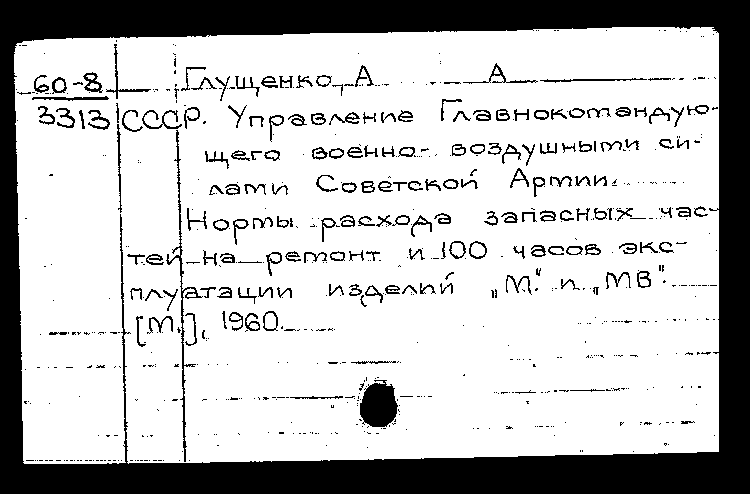 60-8 Глущенко, А А
3313 СССР. Управление Главнокомандую-
щего военно-воздушными си-
лами Советской Армии.
Нормы расхода запасных час-
тей на ремонт и 100 часов экс-
плуатации изделий „М" и „МВ".
[М.], 1960.